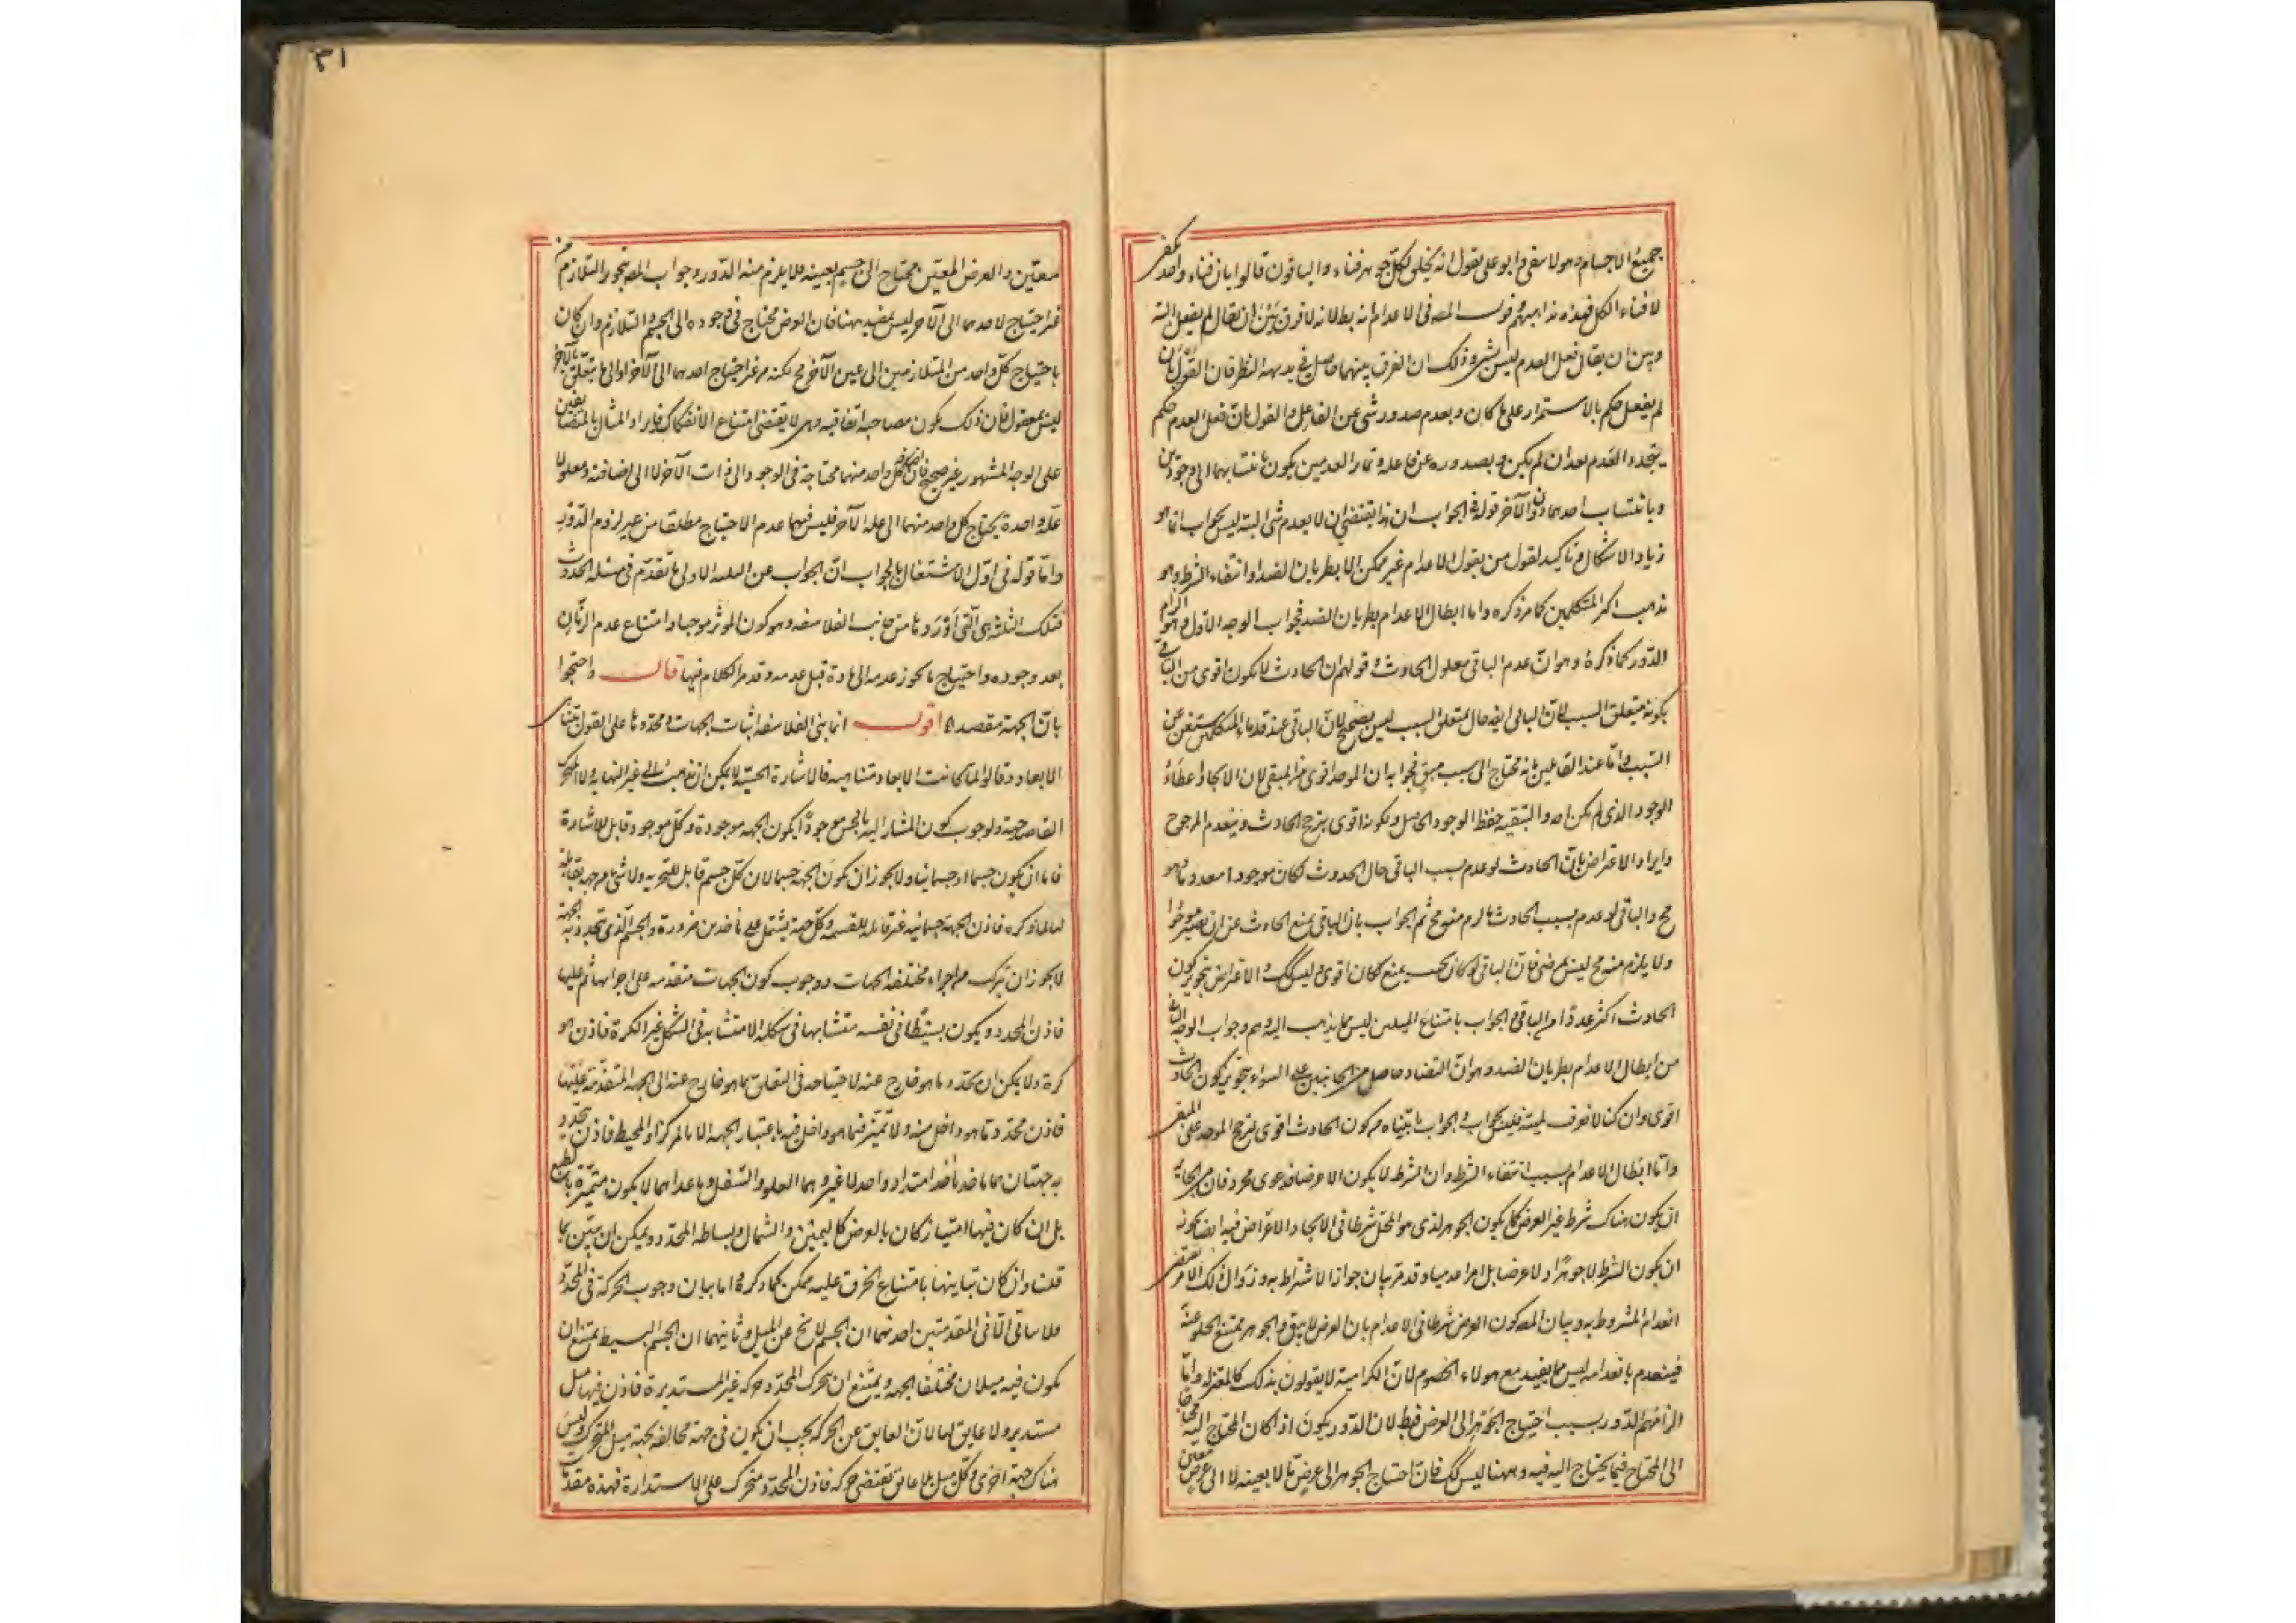 جميع الاجسام وهو لا يبقى وابو على يقول انه يخلق لكل جوهر فناء والباقون قالوا بان فناء واحد يكفى
لافناء الكل فهذه مذاهبهم قوله المص فى الاعدام انه بطلانه لا فرق بين ان يقال لم يفعل البتة
وبين ان يقال فعل العدم ليس بشىء وذلك ان الفرق بينهما حاصل فى بديهة النظر فان القول بان
لم يفعل حكم بالاستمرار على ما كان وبعدم صدور شى عن الفاعل والقول بان فعل العدم حكم
بتجدد العدم بعد ان لم يكن وبصدوره عن فاعله وتمايز العدمين يكون بانتسابهما الى وجودين
وبانتساب احدهما دون الآخر قوله فى الجواب ان هذا يقتضى ان لا يعدم شى البتة ليس بجواب انما هو
زياد الاشكال وتاكيد لقول من يقول الاعدام غير ممكن الا بطريان الضد او انتفاء الشرط وهو
مذهب اكثر المتكلمين كما مر ذكره واما ابطال الاعدام بطريان الضد فجواب الوجه الاول وهو الزام
الدور كما ذكره وهو ان عدم الباقى معلول الحادث و قولهم ان الحادث لا يكون اقوى من الباقى
بكونه متعلق السبب لان الباقى ايضا حال متعلق السبب ليس بصحيح لان الباقى عند قدماء المتكلمين مستغن عن
السبب واما عند القائلين بانه محتاج الى سبب مبق فجوابه ان الموجد اقوى من المبقى لان الايجاد اعطاء
الوجود الذى لم يكن اصلا والتبقية حفظ الوجود الحاصل ولكونه اقوى يترجح الحادث وينعدم المرجوح
وايراد الاعتراض بان الحادث لو عدم بسبب الباقى حال الحدوث لكان موجودا معدوما وهو
مح والباقى لو عدم بسبب الحادث ما لزم منه مح ثم الجواب بان الباقى يمنع الحادث عن ان يصير موجودا
ولا يلزم منه مح ليس بمرضى فان الباقى لو كان بحيث يمنع لكان اقوى وليس كك و الاعتراض بتجويز كون
الحادث اكثر عددا من الباقى و الجواب بامتناع المثلين ليس مما يذهب اليه وهم وجواب الوجه الثانى
من ابطال الاعدام بطريان الضد وهو ان التضاد حاصل من الجانبين على السواء بتجويز كون الحادث
اقوى وان كنا لا نعرف لميته فليس بجواب و الجواب ما بيناه من كون الحادث اقوى لترجح الموجد على المبقى
واما ابطال الاعدام بسبب انتفاء الشرط وان الشرط لا يكون الا عرضا فدعوى مجرد فان من الجايز
ان يكون هناك شرط غير العرض كما يكون الجوهر الذى هو المحل شرطا فى الايجاد الاعراض فيه ايضا يجوز
ان يكون الشرط لا جوهرا ولا عرضا بل امرا عدميا وقد مر بيان جواز الاشتراط به و زوال ذلك الامر يقتضى
انعدام المشروط به وبيان المص كون العرض شرطا فى الاعدام بان العرض لا يبقى و الجوهر يمتنع الخلو عنه
فينعدم بانعدامه ليس مما يفيد مع هولاء الخصوم لان الكرامية لا يقولون بذلك كالمعتزله واما
الزامهم الدور بسبب احتياج الجوهر الى العرض فبط لان الدور يكون اذا كان المحتاج اليه محتاجا
الى المحتاج فيما يحتاج اليه فيه وههنا ليس كك فان احتياج الجوهر الى عرض ما لا بعينه لا الى عرض معين
٣١
معين والعرض المعين محتاج الى جسم بعينه فلا يلزم منه الدور وجواب المص بتجويز التلازم من
غير احتياج لاحدهما الى الآخر ليس بمفيد ههنا فان العرض محتاج فى وجوده الى الجسم و التلازم وان كان
باحتياج كل واحد من المتلازمين الى عين الآخر مح لكنه من غير احتياج احدهما الى الآخر او الى ما يتعلق بالآخر
ليس بمعقول فان ذلك يكون مصاحبة اتفاقيه وهى لا يقتضى امتناع الانفكاك وايراد المثال بالمتضايفين
على الوجه المشهور غير صحيح فان اضافة كل واحد منهما محتاجة فى الوجود الى ذات الآخر لا الى اضافته ومعلولا
علة واحدة يحتاج كل واحد منهما الى علة الآخر فليس فيهما عدم الاحتياج مطلقا من غير لزوم الدور به
واما قوله فى اول الاشتغال بالجواب ان الجواب عن الثلثه الاولى ما تقدم فى مسئلة الحدوث
فتلك الثلثة هى التى اوردها من جانب الفلاسفه وهو كون الموثر موجبا وامتناع عدم الزمان
بعد وجوده واحتياج ما يجوز عدمه الى مادة قبل عدمه وقد مر الكلام فيها قال واحتجوا
بان الجهة مقصده اقول انما بنى الفلاسفه اثبات الجهات و محددها على القول بتناهى
الابعاد وقالوا لما كانت الابعاد متناهيه فالاشارة الحسية لا يمكن ان تذهب الى غير النهايه ولا المتحرك
القاصد جهة ولوجوب كون المشار اليه بالحس موجودا يكون الجهه موجودة وكل موجود قابل للاشارة
فاما ان يكون جسما او جسمانيا ولا يجوز ان يكون الجهه جسما لان كل جسم قابل للتجزيه ولا شى من جهه بقابلة
لها لما ذكره فاذن الجهة جسمانيه غير قابله للقسمه وكل جهة يشتمل على ماخذين ضرورة والجسم الذى تتحدد به الجهة
لا يجوز ان يتركب من اجزاء مختلفة الجهات ووجوب كون الجهات متقدمه على اجزائها ثم عليها
فاذن المحدد يكون بسيطا فى نفسه متشابها فى شكله لا متشابه فى الشكل غير الكرة فاذن هو
كرة ولا يمكن ان يحدد ما هو خارج عنه لاحتياجه فى التعلق بما هو خارج عنه الى الجهة المتقدمة عليها
فاذن محدد ما هو داخل منه ولا تميز فيما هو داخل فيه باعتبار الجهة الا بالمركز او المحيط فاذن يتحدد
به جهتان هما ماخذا امتداد واحد لا غير وهما العلو والسفل وما عداهما لا يكون متميزة بالطبع
بل ان كان فيها امتياز كان بالعرض كاليمين والشمال وبساطه المحدد ويمكن ان يتبين بما
قلت وان كان تباينها بامتناع الخرق عليه ممكن كما ذكره و اما بيان وجوب الحركة فى المحدد
فلا يتاتى الا فى المقدمتين احدهما ان الجسم لا يخ عن الميل وثانيهما ان الجسم البسيط يمتنع ان
يكون فيه ميلان مختلفا الجهه ويمتنع ان يتحرك المحدد حركه غير المستديرة فاذن فيها ميل
مستدير ولا عايق لها لان العايق عن الحركه يجب ان يكون فى جهة مخالفه لجهة ميل المتحرك وليس
هناك جهة اخرى وكل ميل بلا عائق يقتضى حركه فاذن المحدد متحرك على الاستدارة فهذه مقدمات